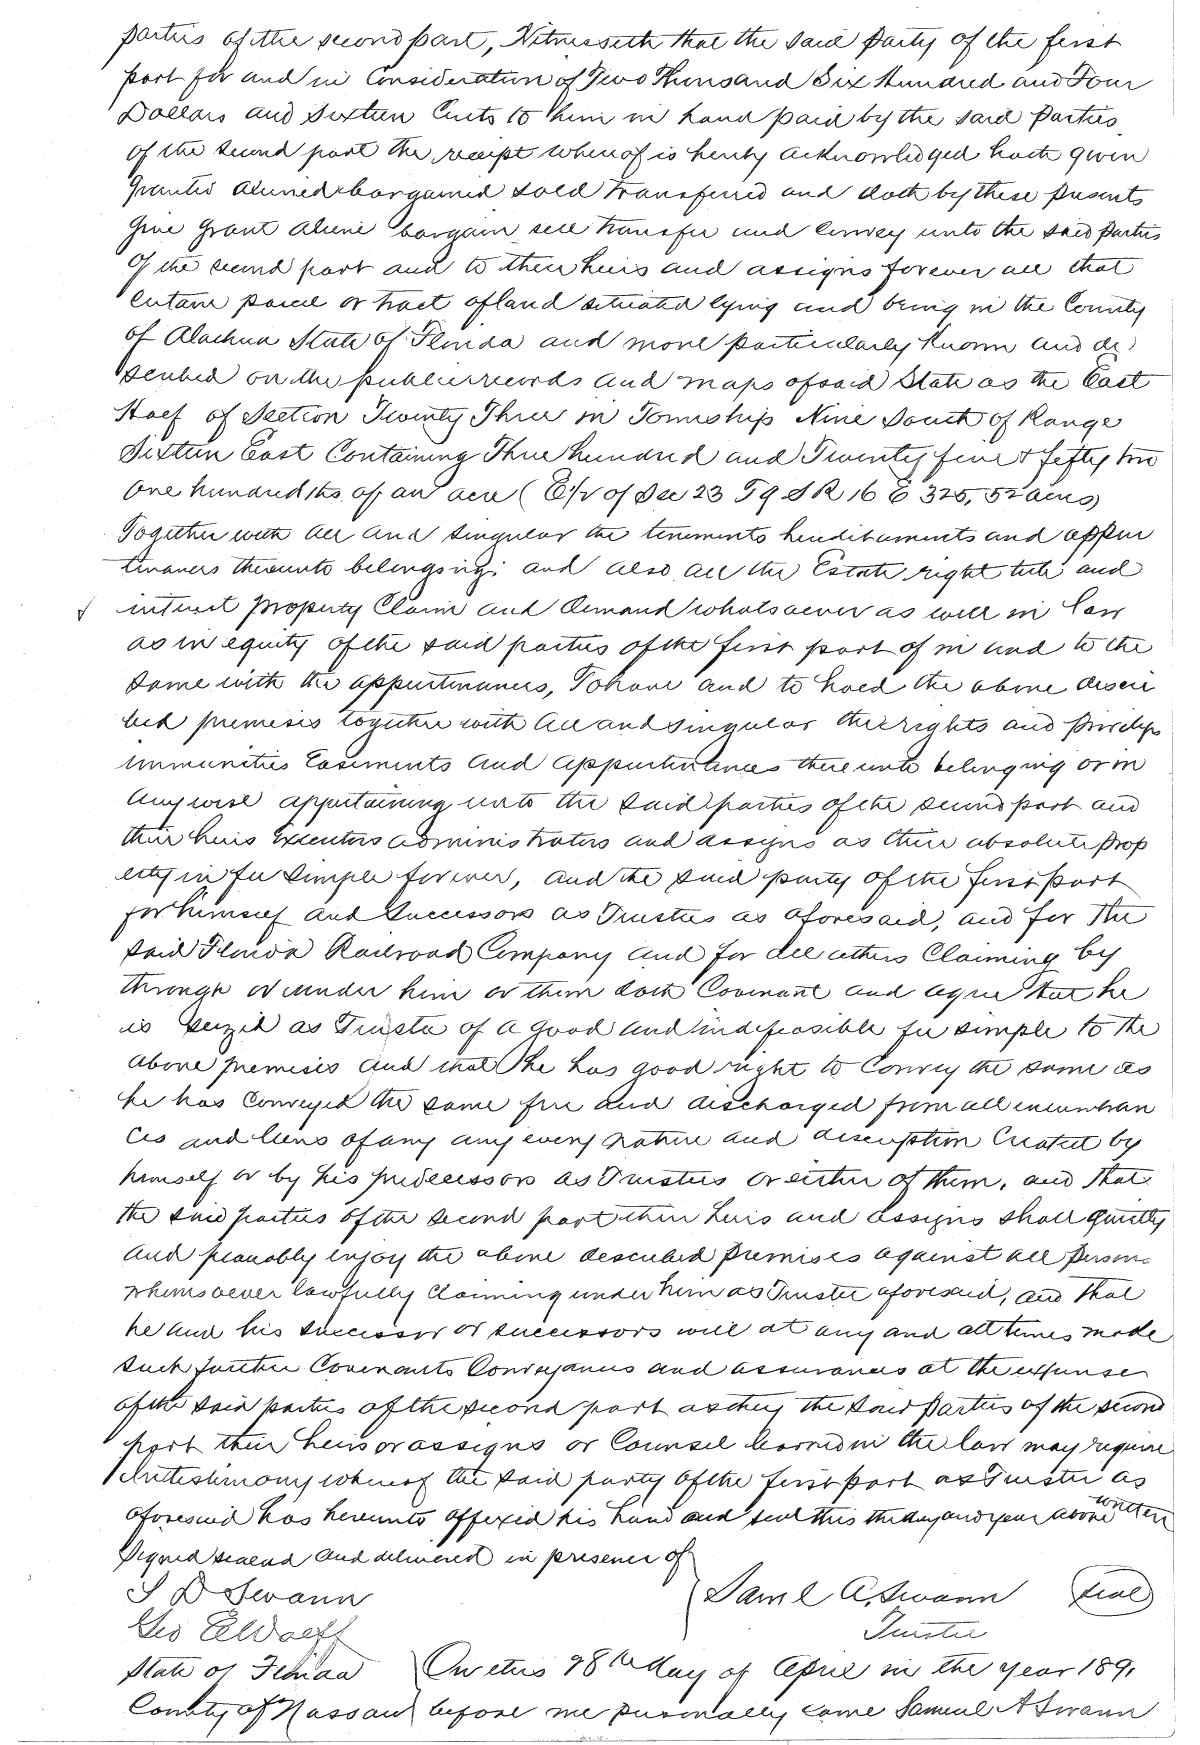 parties of the second part, Witnesseth that the said Party of the first
part for and in Consideration of Two Thousand Six Hundred and Four
Dollars and Sixteen Cents to him in hand paid by the said Parties
of the second part the receipt whereof is hereby acknowledged hath given
granted aliened bargained sold transferred and doth by these presents
give grant aliene bargain sell transfer and convey unto the said parties
of the second part and to their heirs and assigns forever all that
certain parcel or tract of land situated lying and being in the County
of Alachua State of Florida and more particularly known and de
scribed on the public records and maps of said State as the East
Half of Section Twenty Three in Township Nine South of Range
Sixteen East Containing Three hundred and Twenty five & fifty two
one hundredths of an acre (E/2 of Sec 23 T 9 S R 16 E 325,52 acres)
Together with all and singular the tenements hereditaments and appur
tenances thereunto belongsing; and also all the Estate right title and
interest property Claim and demand whatsoever as well in law
as in equity of the said parties of the first part of in and to the
same with the appurtenances, To have and to hold the above descri
bed premises together with all and singular the rights and privileges
immunities Easements and appurtenances thereunto belonging or in
anywise appertaining unto the said parties of the second part and
their heirs Executors administrators and assigns as their absolute prop
erty in fee simple forever, and the said party of the first part
for himself and Successors as Trustees as aforesaid, and for the
said Florida Railroad Company and for all others Claiming by
through or under him or them doth Covenant and agree that he
is seized as Trustee of a good and indefeasible fee simple to the
above premises and that he has good right to Convey the same as
he has Conveyed the same free and discharged from all incumbran
ces and liens of any any every nature and description Created by
himself or by his predecessors as Trustees or either of them, and that
the said parties of the second part their heirs and assigns shall quietly
and peaceably enjoy the above described premises against all persons
whomsoever lawfully Claiming under him as Trustee aforesaid, and that
he and his successor or successors will at any and all times made
such further Covenants Conveyances and assurances at the expense
of the said parties of the second part as they the said Parties of the second
part their heirs or assigns or Counsel learned in the law may require
In testimony whereof the said party of the first part as Trustee as
aforesaid has hereunto affixed his hand and seal this the day and year above written
Signed sealed and delivered in presence of
S D Swann
Saml A. Swann seal
Geo E Wolff
Trustee
State of Florida On this 28th day of April in the year 1891
County of Nassau before me personally came Samuel A Swann